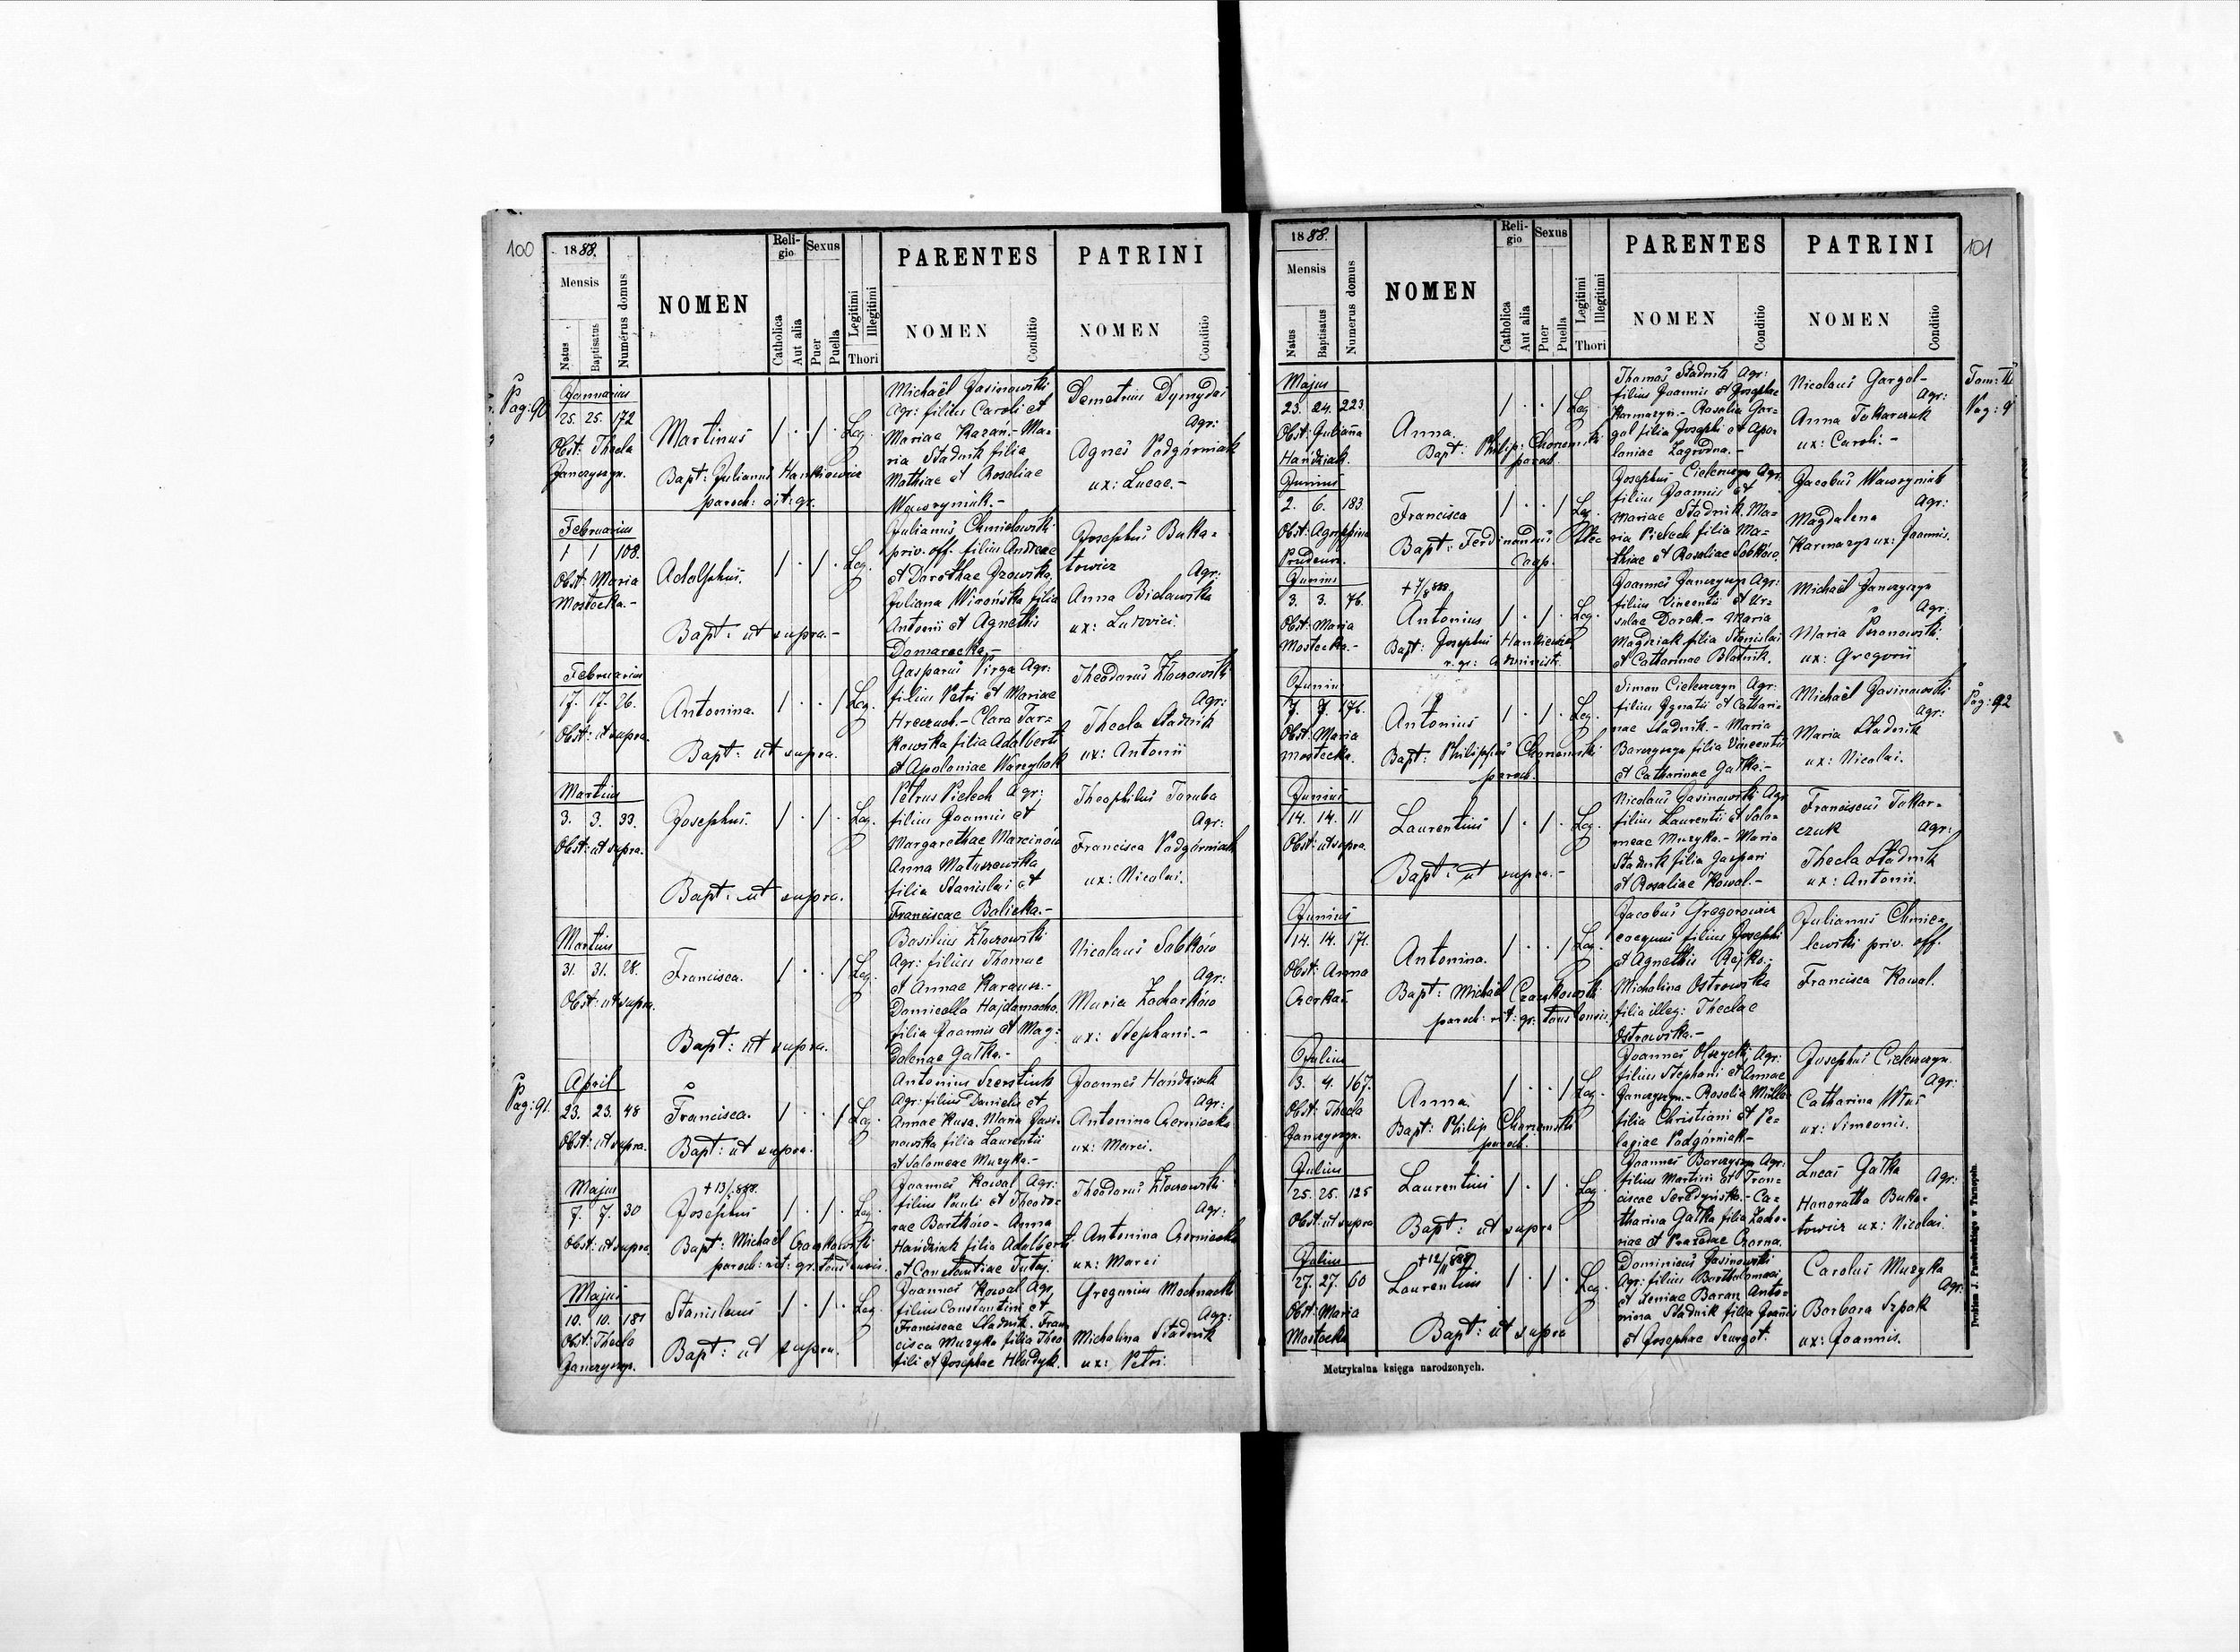 100
1888.
Mensis
Natus
Baptisatus
Numerus domus
NOMEN
Religio
Catholica
Aut alia
Sexus
Puer
Puella
Legitimi
Illegitimi
Thori
PARENTES
NOMEN
Conditio
PATRINI
NOMEN
Conditio
Pag: 90
Januarius
25. 25. 172
Obst: Thecla
Janczyszyn.
Martinus
Leg.
Bapt: Julianus Hankiewicz
paroch: rit: gr.
Michaël Jasinowski
Agr: filius Caroli et
Mariae Kazan.- Ma=
ria Stadnik filia
Mathiae et Rosaliae
Wawryniuk.-
Demetrius Dymydas
Agr:
Agnes Podgórniak
ux: Lucae.-
Februarius
1 1 108.
Obst: Maria
Mostecka.-
Adolphus.
Leg.
Bapt: ut supra.-
Julianus Chmielowski
priv. off. filius Andreae
et Dorothae
Juliana filia
Antonii et Agnethis
Domarecka.-
Josephus Buka=
towicz
Agr:
Anna Bielawska
ux: Ludovici.
Februarius
17. 17. 26.
Obst: ut supra.
Antonina.
Leg.
Bapt: ut supra.
Gasparus Pirga Agr:
filius Petri et Mariae
Hreczuch.- Clara Tar=
kowska filia Adalberti
et Apoloniae
Theodorus Złoczowski
Agr:
Thecla Stadnik
ux: Antonii
Martius
3. 3. 33.
Obst: ut supra.
Josephus.
Leg.
Bapt: ut supra.
Petrus Pielech Agr:
filius Joannis et
Margarethae Marcinów
Anna Matuszewska
filia Stanislai et
Franciscae Balicka.-
Theophilus Taruba
Agr:
Francisca Podgórniak
ux: Nicolai.
Martius
31. 31. 28.
Obst: ut supra.
Francisca.
Leg.
Bapt: ut supra.
Basilius Złoczowski
Agr: filius Thomae
et Annae Karaus.-
Domicella Hajdamacha
filia Joannis et Mag=
dalenae Gałka.-
Nicolaus Sobków
Agr:
Maria Zacharków
ux: Stephani.-
Pag: 91.
April
23. 23. 48
Obst: ut supra.
Francisca.
Leg.
Bapt: ut supra.
Antonius Szerstiuk
Agr: filius Danielis et
Annae Kusa. Maria Jasi=
nowska filia Laurentii
et Salomeae Muzyka.-
Joannes Hańdziak
Agr:
Antonina Czerniecka
ux: Marci.
Majus
7. 7. 30
Obst: ut supra.
+13/5 888.
Josephus
Leg.
Bapt: Michaël Czajkowski
paroch: rit: gr.
Joannes Kowal Agr:
filius Pauli et Theodo=
rae Bartków- Anna
Hańdziak filia Adalberti
et Constantiae Tutaj.
Theodorus Złoczowski
Agr:
Antonina Czerniecka
ux: Marci
Majus
10. 10. 181
Obst: Thecla
Janczyszyn.
Stanislaus
Leg.
Bapt: ut supra.
Joannes Kowal Agr,
filius Constantini et
Franciscae Stadnik. Fran
cisca Muzyka filia Theo
fili et Josephae Hladyk.
Gregorius Mochnacki
Agr:
Michalina Stadnik
ux: Petri.
101
1888.
Mensis
Natus
Baptisatus
Numerus domus
NOMEN
Religio
Catholica
Aut alia
Sexus
Puer
Puella
Legitimi
Illegitimi
Thori
PARENTES
NOMEN
Conditio
PATRINI
NOMEN
Conditio
Majus
23. 24. 223.
Obst: Julianna
Hańdziak.
Anna.
Leg
Bapt: Philip:
paroch.
Thomas Stadnik Agr:
filius Joannis et Josephae
Karmazyn.- Rosalia Gar=
gol filia Josephi et Apo=
loniae Zagrodna.-
Nicolaus Gargol-
Agr:
Anna Tokarczuk
ux: Caroli.-
Junius
2. 6. 183.
Obst: Agrippina
Francisca
Leg.
Bapt: Ferdinandus
Coop.
Josephus Cieleszczyn Agr.
filius Joannis et
Mariae Stadnik. Ma=
ria Pielech filia Ma=
thiae et Rosaliae Sobków.
Jacobus Wawryniuk
Agr:
Magdalena
Karmazyn ux: Joannis.
Junius
3. 3. 76.
Obst: Maria
Mostecka.-
+7/8 888
Antonius
Leg.
Bapt: Josephus Hankiewicz
r. gr: administ.
Joannes Janczyszyn Agr:
filius Vincentii et Ur=
sulae Dorek.- Maria
Madziak filia Stanislai
et Catharinae Blatnik.
Michaël Janczyszyn
Agr:
Maria
ux: Gregorii
Junius
7. 9. 176.
Obst: Maria
Mostecka.
Antonius
Leg.
Bapt: Philippus
paroch.
Simon Cieleszczyn Agr:
filius Ignatii et Cathari=
nae Stadnik.- Maria
Barczyszyn filia Vincentii
et Catharinae Gałka.-
Michaël Jasinowski
Agr:
Maria Stadnik
ux: Nicolai.
Pag: 92
Junius
14. 14. 11
Obst: ut supra.
Laurentius
Leg.
Bapt: ut supra.-
Nicolaus Jasinowski Agr
filius Laurentii et Salo=
meae Muzyka.- Maria
Stadnik filia Gaspari
et Rosaliae Kowal.-
Franciscus Tokar=
czuk
Agr:
Thecla Stadnik
ux: Antonii.
Junius
14. 14. 171.
Obst: Anna
Czerkas
Antonina.
Leg.
Bapt: Michaël Czajkowski
paroch: rit: gr:
Jacobus Gregorowicz
filius Josephi
et Agnethis Rejko.;
Michalina Ostrowska
filia illeg: Theclae
Ostrowska.-
Julianus Chmie=
lewski priv. off.
Francisca Kowal.
Julius
3. 4. 167.
Obst: Thecla
Janczyszyn.
Anna.
Leg.
Bapt: Philip
paroch:
Joannes Olszycki Agr:
filius Stephani et Annae
Janczyszyn.- Rosalia Müller
filia Christiani et Pe=
lagiae Podgórniak.-
Josephus Cieleszczyn.
Agr:
Catharina Włas
ux: Simeonis.
Julius
25. 25. 125
Obst: ut supra
Laurentius
Leg.
Bapt: ut supra
Joannes Barczyszyn Agr:
filius Martini et Fran=
ciscae Seredyńska.- Ca=
tharina Gałka filia Zacha=
riae et Praxedae Czorna.
Lucas Gałka
Agr:
Honoratha Buka=
towicz ux: Nicolai.
Julius
27. 27. 60
Obst: Maria
Mostecka
+12/11 889
Laurentius
Leg.
Bapt: ut supra
Dominicus Jasinowski
Agr: filius Bartholomaei
et Xeniae Baran. Anto=
nina Stadnik filia Joannis
et Josephae Szurgot.
Carolus Muzyka
Agr:
Barbara Szpak
ux: Joannis.
Metrykalna księga narodzonych.
Drukiem J. Pawłowskiego w Tarnopolu.